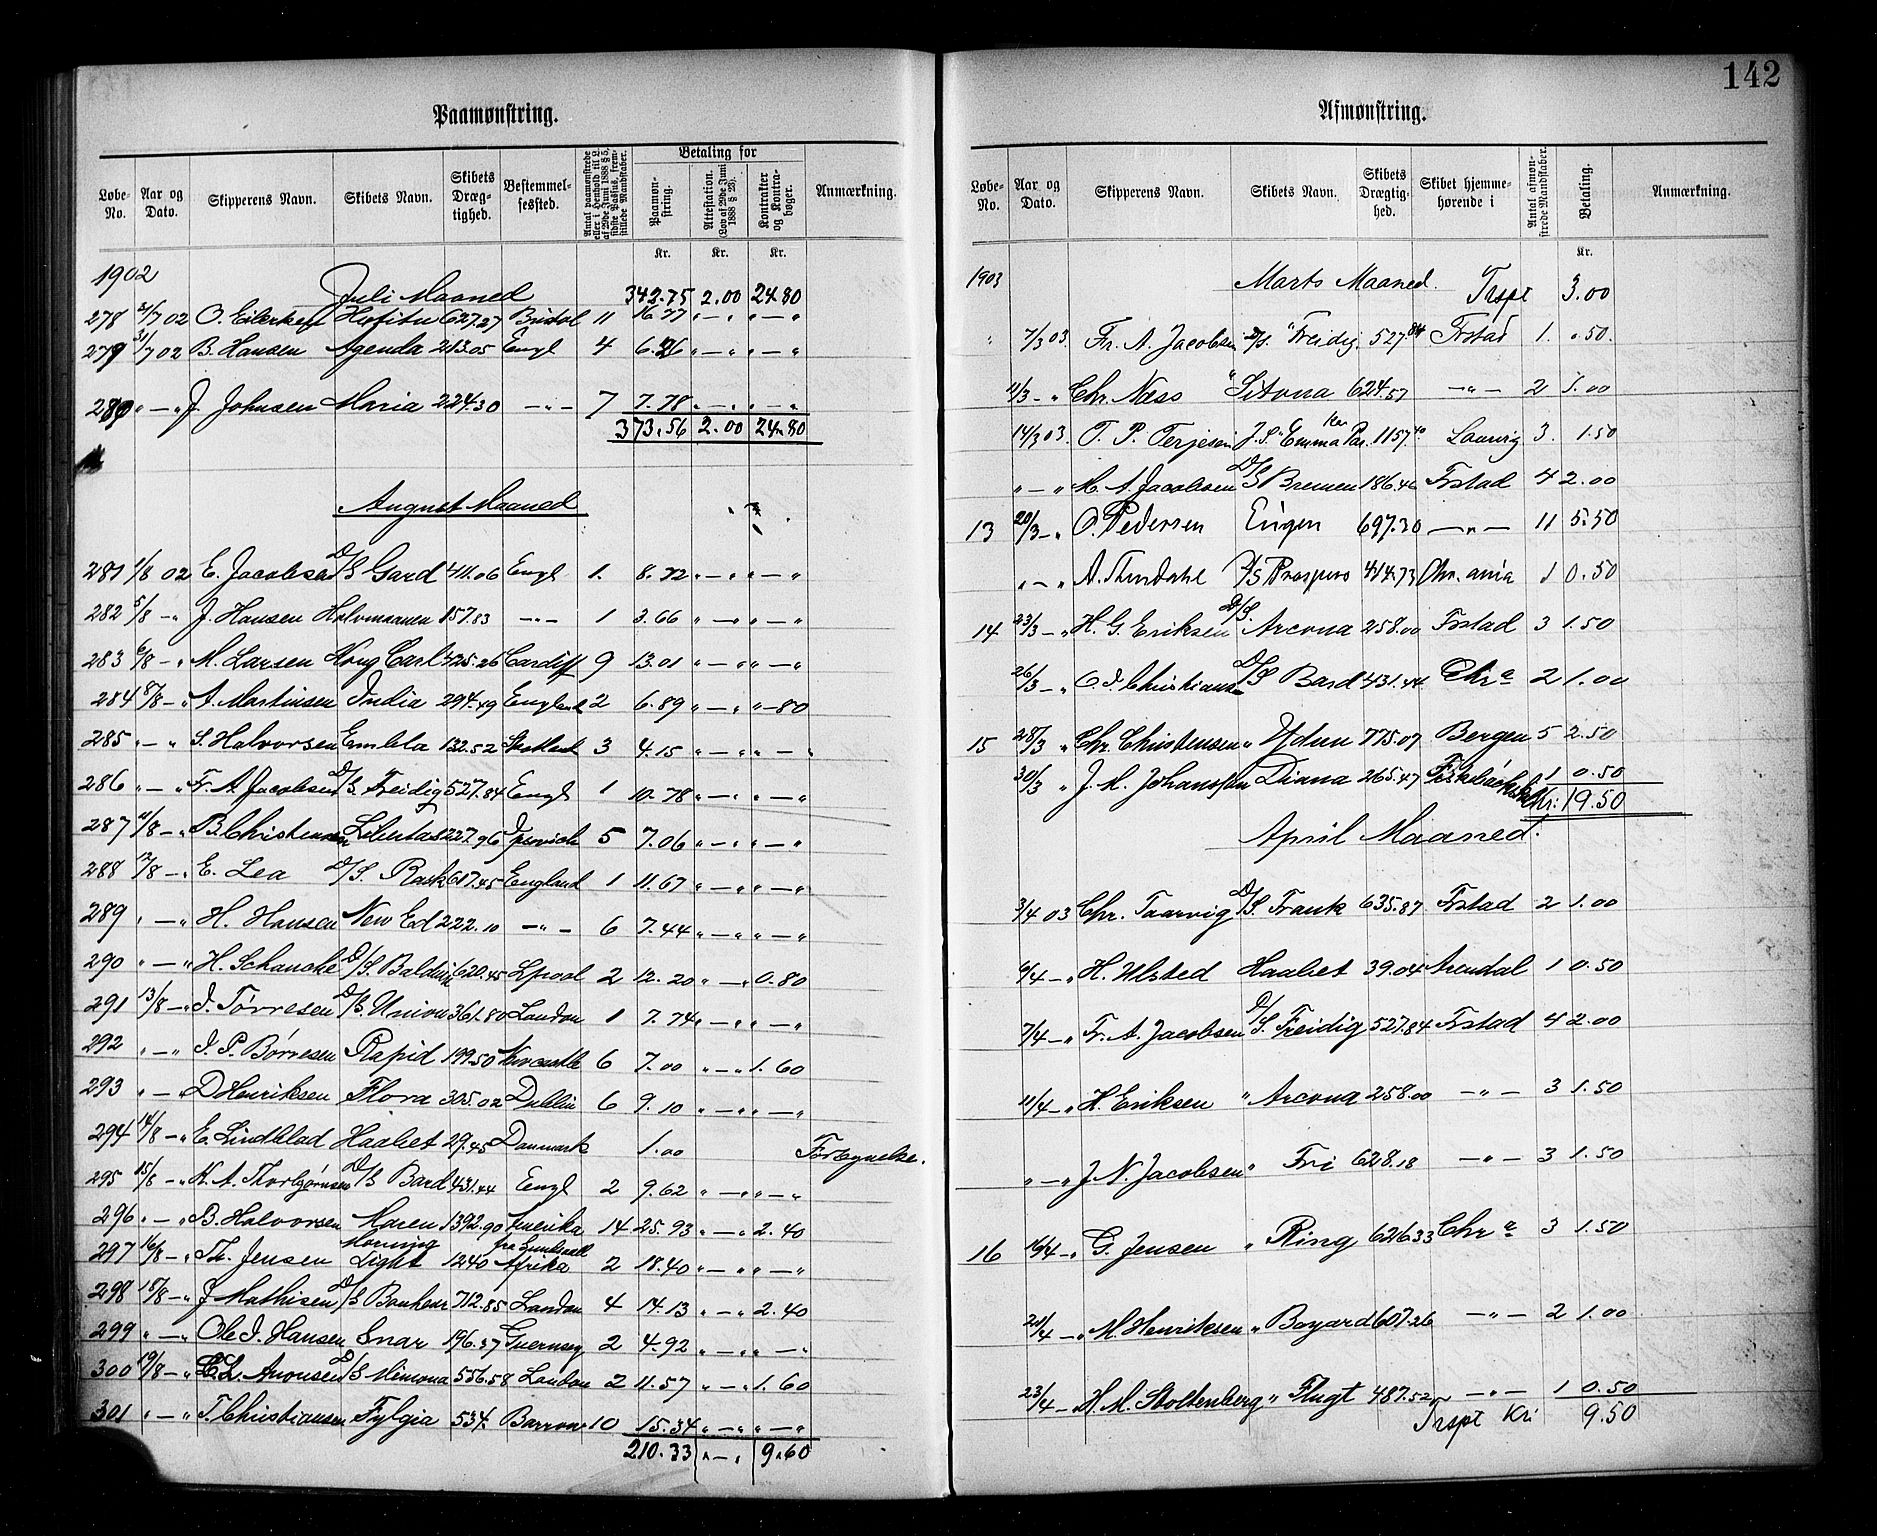 142
Paamønstring.
Løbe-No. Aar og Dato. Skipperens Navn. Skibets Navn. Skibets Dræg-tighed. Bestemmel-sessted. Antal paamønstrede eller i Henhold til L. af 29de Juni 1888 § 5, sidste Passus, frem-stillede Mandskaber. Betaling for Paamøn-string. Attestation. (Lov af 29de Juni 1888 § 23). Kontrakter og Kontra-bøger. Anmærkning.
Kr. Kr. Kr.
1902
Juli Maaned 342.75 2.00 24.80
278 31/7 02 O. Eilertsen 627.27 Bristol 11 16.77 " — " " — "
279 31/7 02 B. Hansen Agenda 213.05 Engl 4 6.26 " — " " — "
280 " — " J. Johnsen Maria 224.30 — " — 7 7.78 " — " " — "
373.56 2.00 24.80
August Maaned
281 1/8 02 E. Jacobsen D/S Gard 411.06 Engl. 1. 8.72 " — " " — "
282 5/8 — " J. Hansen Halvmaanen 157.83 — " — 1 3.66 " — " " — "
283 6/8 — " M. Larsen Kong Carl 425.26 Cardiff 9 13.01 " — " " — "
284 8/8 — " A. Martinsen India 294.49 England 2 6.89 " — " " — 80
285 " — " S. Halvorsen Embla 132.52 3 4.15 " — " " — "
286 " — " Fr. A. Jacobsen D/S. Freidig 527.84 Engl 1 10.78 " — " " — "
287 11/8 — " B. Christensen Libertas 227.96 Ipswich 5 7.06 " — " " — "
288 12/8 — " E. Lea D/S. Rask 617.45 England 1 11.67 " — " " — "
289 " — " H. Hansen New Ed 222.10 — " — 6 7.44 " — " " — "
290 " — " H. Schanche D/S. Baldwin 620.45 Lpool 2 12.20 " — " 0.80
291 13/8 — " I. Tørresen D/S. Union 361.80 London 1 7.74 " — " " — "
292 " — " I. P. Børresen Rapid 199.50 Newcastle 6 7.00 " — " 1.60
293 " — " D Henriksen Flora 305.02 Dublin 6 9.10 " — " " — "
294 14/8 — " E. Lindblad Haabet 29.45 Danmark 1.00 Forhyrelse.
295 15/8 — " K. A. Thorbjørnsen D/S Bard 431.44 Engl 2 9.62 " — " " — "
296 " — " B. Halvorsen Maren 1392.90 Amerika 14 25.93 " — " 2.40
297 16/8 — " Th. Jensen Morning Light 1240 Afrika 2 18.40 " — " " — "
298 18/8 — " J Mathisen D/S Bonheur 712.85 London 4 14.13 " — " 2.40
299 " — " Ole I. Hansen Snar 196.37 Guernsey 2 4.92 " — " " — "
300 19/8 — " Aronsen D/S Mimona 556.58 London 2 11.57 " — " 1.60
301 " — " T. Christiansen Fylgia 534. Barrow 10 15.34 " — " " — "
210.33 " — " 9.60
Afmønstring.
Løbe-No. Aar og Dato. Skipperens Navn. Skibets Navn. Skibets Drægtig-hed. Skibet hjemme-hørende i Antal afmøn-strede Mandskaber. Betaling. Anmærkning.
Kr.
1903 Marts Maaned. Trspt 3.00
" 7/3 03. Fr. A. Jacobsen D/S. "Freidig. 527.84 Frstad 1. ".50.
11/3 — " Chr. Næss " Sitona 624.57 — " — 2 1.00
14/3 03. T. P. Terjesen J.S. "Emma Par. 1157.40 Laurvig 3. 1.50
" — " M. A. Jacobsen D/S Bremen 186.46 Frstad 4 2.00
13 20/3 — " O. Pedersen Eugen 697.30 — " — 11 5.50
" — " A. Thendahl D/S Prospero 414.73 Chr.ania 1 0.50
14 23/3 — " H. G. Eriksen D/S. Arcona 258.00 Frstad 3 1.50
26/3 — " O. I. Christiansen D/S Bard 431.44 Chra 2 1.00
15 28/3 " Chr. Christensen " Ydun 775.07 Bergen 5 2.50
30/3 " J. M. Johansson Diana 265.47 1 0.50
Kr: 19.50
April Maaned.
3/4 03 Chr. Taarvig D/S. Frank 635.87 Frstad 2 1.00
6/4 — " H. Ulsted Haabet 39.04 Arendal 1 0.50
7/4 — " Fr. A. Jacobsen D/S. Freidig 527.84 Frstad 4 2.00
11/4 — " H. Eriksen " Arcona 258.00 — " — 3 1.50
" — " J. N. Jacobsen " Fri 628.18 — " — 3 1.50
16 16/4 — " G. Jensen " Ring 626.33 Chra 3 1.50
20/4 — " M. Henriksen " Bayard 607.26 — " — 2 1.00
23/4 — H. M. Stoltenberg " Flugt 487.52 — " — 1 0.50
Trspt Kr: 9.50